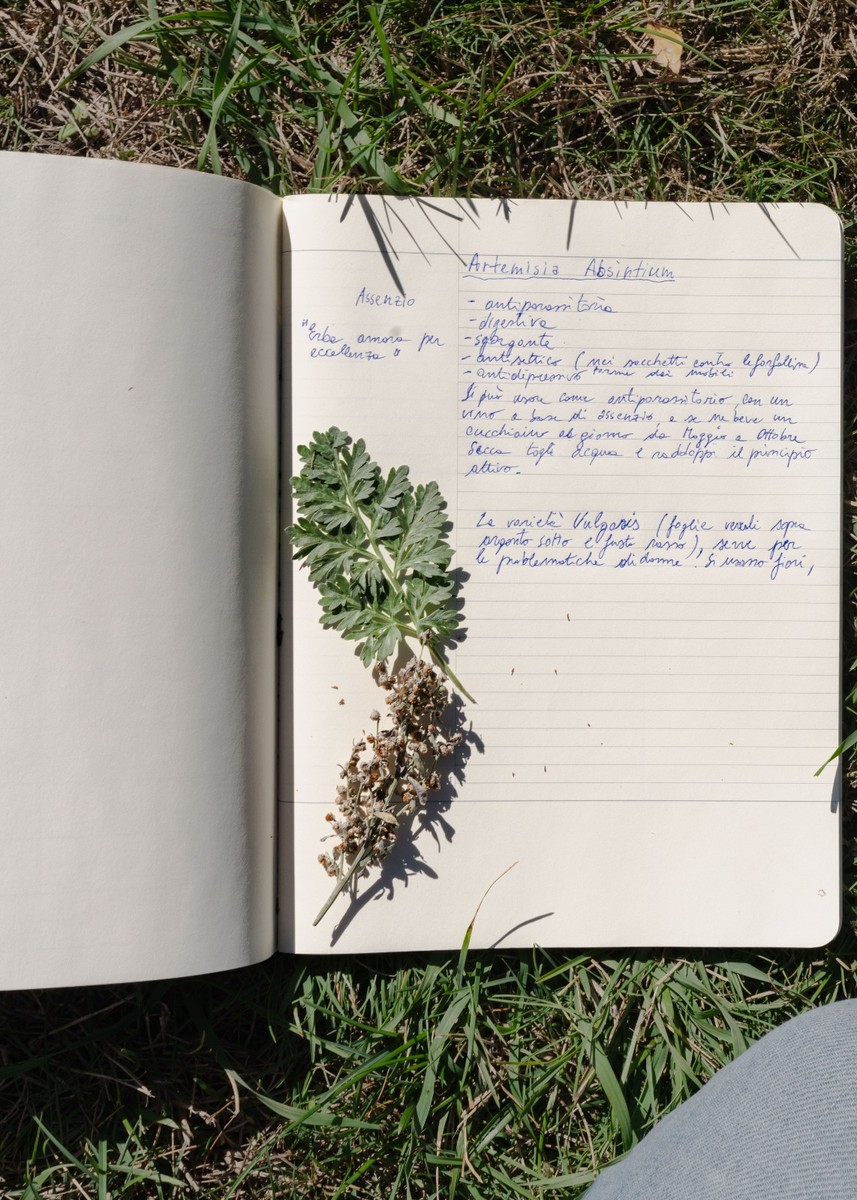 Artemisia Absintium
Assenzio
"Erba amara per
eccellenza"
- antiparassitaria
- digestiva
- sgorgante
- antisettico (nei sacchetti contro le farfalline)
- antidepressivo tarme dei mobili
Si può usare come antiparassitario, con un
vino a base di assenzio, e se ne beve un
cucchiaino al giorno da Maggio a Ottobre
Secca togli acqua e raddoppi il principio
attivo.
La varietà Vulgaris (foglie verdi sopra
argento sotto e fusto rosso), serve per
le problematiche di donne. Si usano fiori,